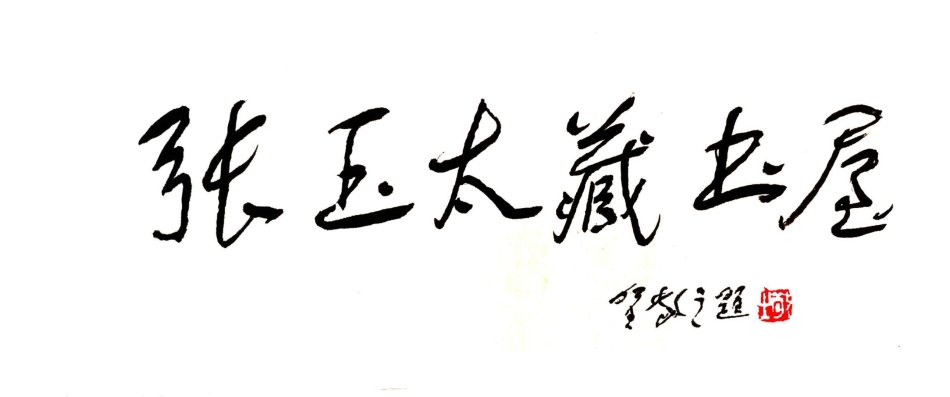 张玉太藏书屋
贺敬之題